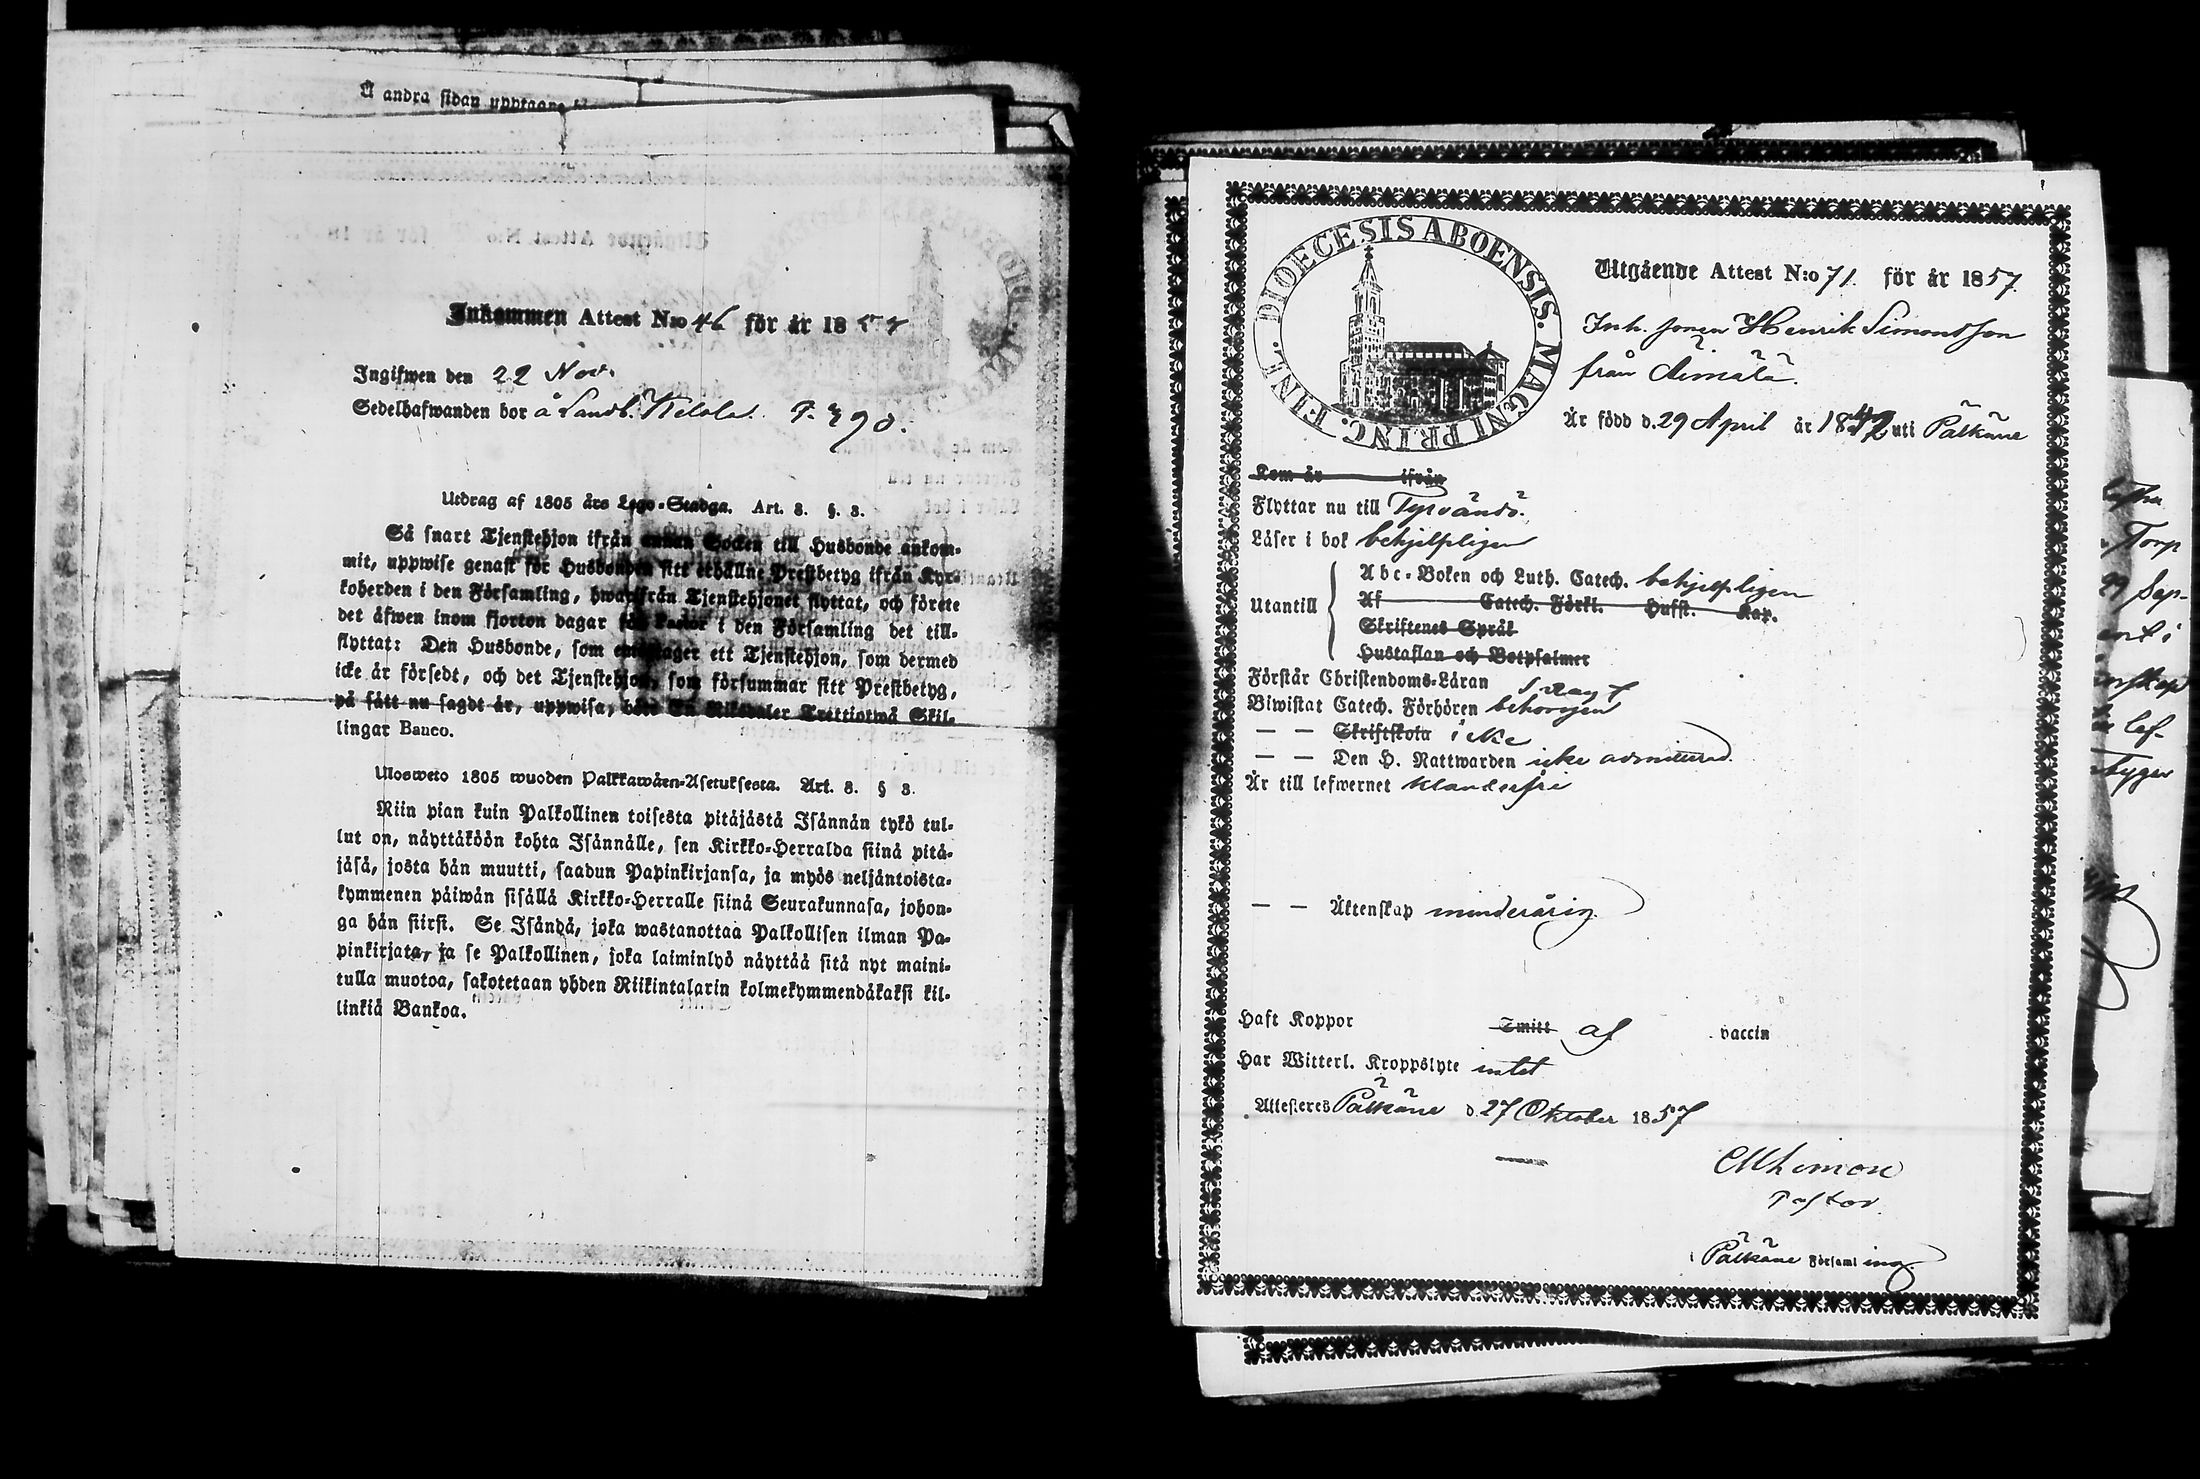 Å andra sidan upptages
Inkommen Attest N:o 46 för år 1857
Ingifwen den 22 Nov.
Sedelhafwanden bor å Landb. F. 390.
Utdrag af 1805 års Lego-Stadga. Art. 3. §. 3.
Så snart Tjenstehjon ifrån annan Socken till Husbonde ankom-
mit, uppwise genast för Husbonden sitt erhållne Prestbetyg ifrån Kyr-
koherden i den Församling, hwarifrån Tjenstehjonet flyttat, och förete
det äfwen inom fjorton dagar för Pastor i den Församling det till-
flyttat: Den Husbonde, som emottager ett Tjenstehjon, som dermed
icke är försedt, och det Tjenstehjon, som försummar sitt Prestbetyg,
på sätt nu sagdt är, uppwisa, böte En Riksdaler Trettiotwå Skil-
lingar Banco.
Ulosweto 1805 wuoden Palkkawäen-Asetuksesta. Art. 3. § 3.
Niin pian kuin Palkollinen toisesta pitäjästä Isännän tykö tul-
lut on, näyttäköön kohta Isännälle, sen Kirkko-Herralda siinä pitä-
jäsä, josta hän muutti, saadun Papinkirjansa, ja myös neljäntoista-
kymmenen päiwän sisällä Kirkko-Herralle siinä Seurakunnasa, johon-
ga hän siirsi. Se Isändä, joka wastanottaa Palkollisen ilman Pa-
pinkirjata, ja se Palkollinen, joka laiminlyö näyttää sitä nyt maini-
tulla muotoa, sakotetaan yhden Riikintalarin kolmekymmendäkaksi kil-
linkiä Bankoa.
DIOECESIS ABOENSIS. MAGNI PRINC. FINL.
Utgående Attest N:o 71 för år 1857
Inh. sonen Henrik Simonsson
från Äimälä.
Är född d. 29 April år 1842 uti Pälkäne
Kom år ifrån
Flyttar nu till Tyrvändö.
Läser i bok behjelpligen
Utantill
Abc-Boken och Luth. Catech. behjelpligen
Af Catech. Förkl. Hufst. Kap.
Skriftenes Språk
Hustaflan och Botpsalmer
Förstår Christendoms-Läran svagt
Biwistat Catech. Förhören behörigen
— — Skriftskola icke
— — Den H. Nattwarden icke admitterad.
Är till lefwernet klanderfri
— — Äktenskap minderårig.
Haft Koppor Smitt af vaccin
Har Witterl. Kroppslyte intet
Attesteres Pälkäne d. 27 Oktober 1857
Pastor.
i Pälkäne Församling.
Torp